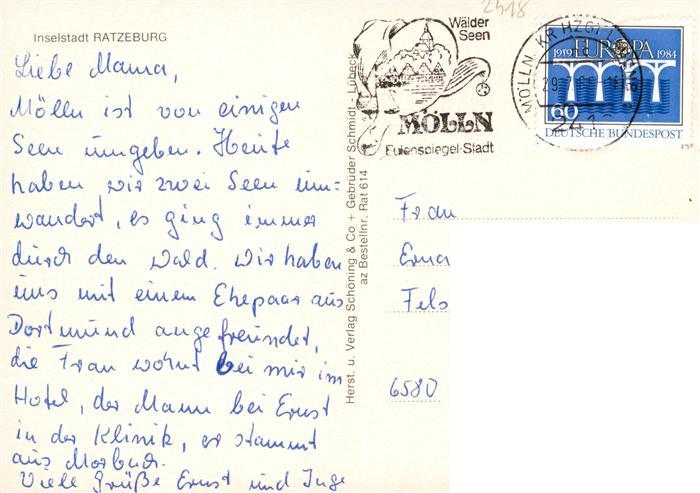 2418
Inselstadt RATZEBURG
Liebe Mama,
Mölln ist von einigen
Seen umgeben. Heute
haben wir zwei Seen um-
wandert, es ging immer
durch den Wald. Wir haben
uns mit einem Ehepaar aus
Dortmund angefreundet,
die Frau wohnt bei mir im
Hotel, der Mann bei Ernst
in der Klinik, er stammt
aus Morbach.
Viele Grüße Ernst und Inge
Herst. u. Verlag Schöning & Co + Gebrüder Schmidt - Lübeck
az Bestellnr. Rat 614
Wälder
Seen
MÖLLN
Eulenspiegel-Stadt
MÖLLN, KR HZGT
29.7
2410
1959 EUROPA 1984
60
DEUTSCHE BUNDESPOST
Frau
Erna
Fels
6580